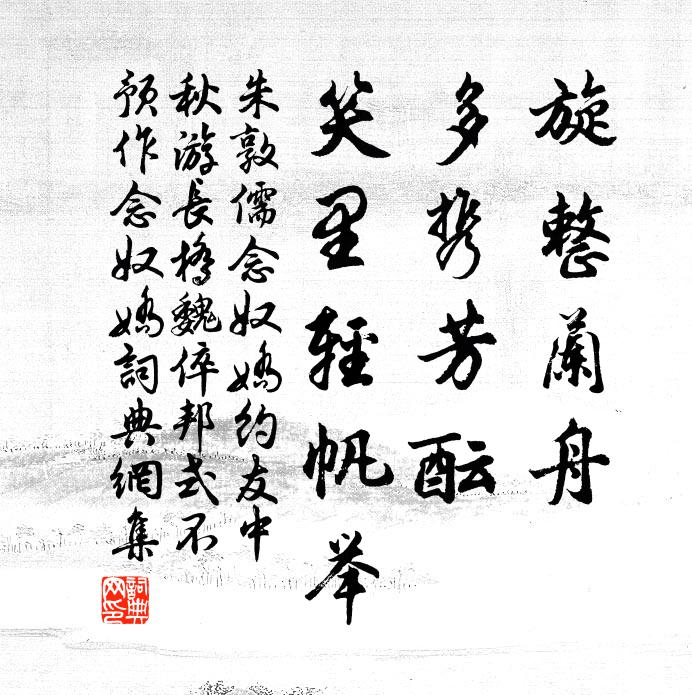 旋整蘭舟
多携芳酝
笑里輕帆举
朱敦儒念奴嬌約友中
秋游長橋魏倅邦式不
預作念奴嬌詞典網集
詞典网印